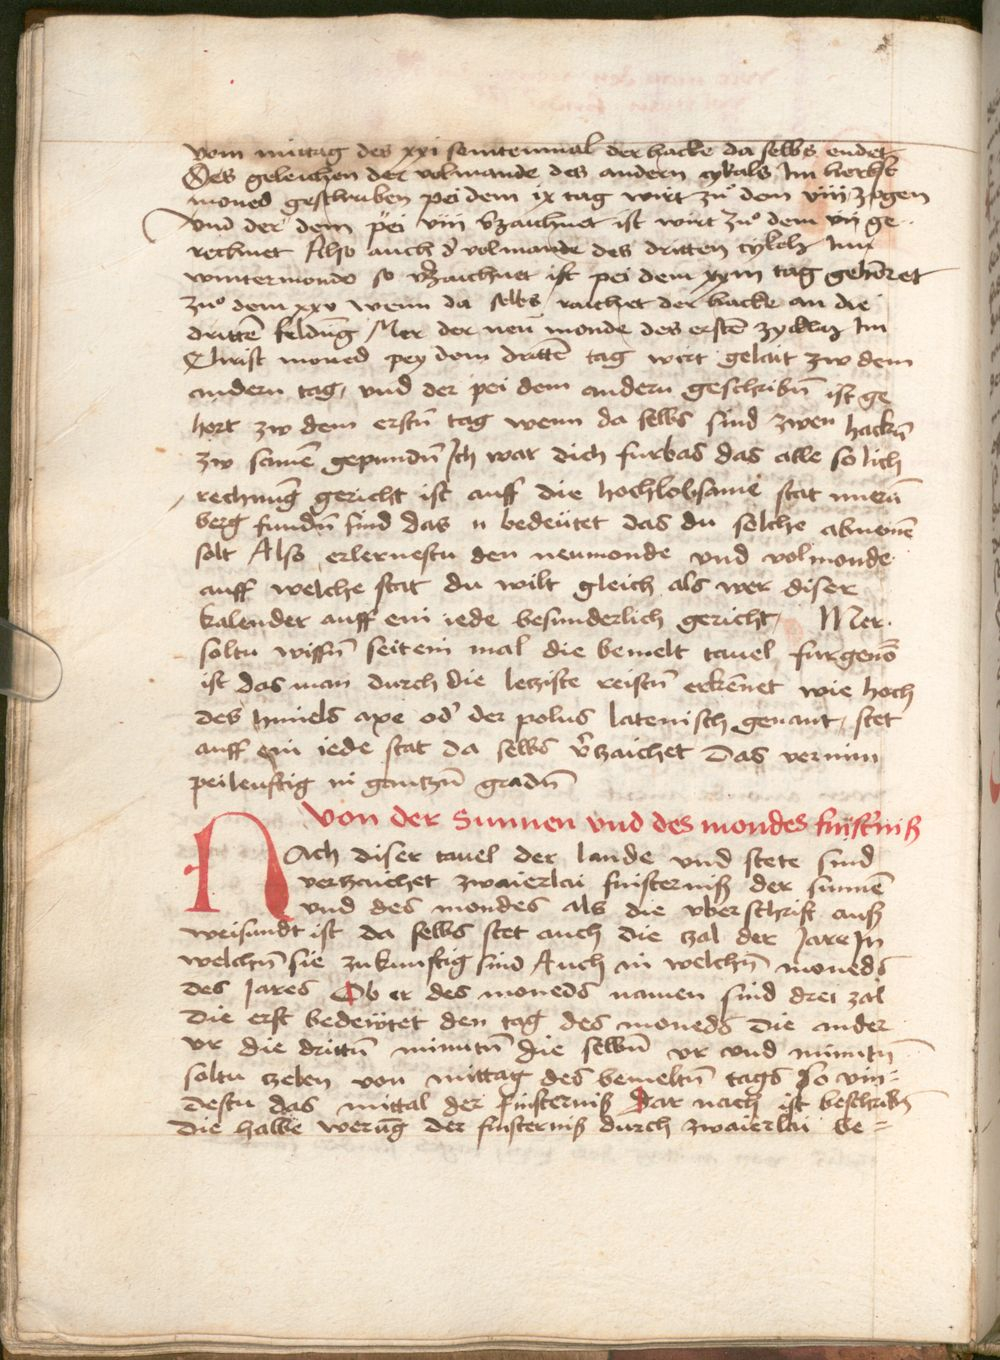 vom mittag des xxi semtenmal der hacke da selbs endet
Des geleichen der volmande des andern cykels Im herbst
moned geschriben pei dem ix tag wirt zu dem viii zogen
vnd der dem pei viii v̄zaichnet ist wirt zuͦ dem vii ge
rechnet Also auch d̕ volmande des dritten cykels Im
wintermondo so v̄zaichnet ist pei dem xxiii tag gehöret
zuͦ dem xxv wenn da selbs raichet der hacke an die
drittē feldūg Mer der neū monde des erstē zycklz Im
Christ moned pey dem drittē tag wirt gelait zw dem
andern tag, vnd der pei dem andern geschribn̄ ist ge
hort zw dem erstn̄ tag wenn da selbs sind zwen hackn̄
zw samē gepundn̄ Ich war dich furbas das alle solich
rechnūg gericht ist auff die hochlobsame stat nuerā
berg fundn̄ sind das n bedeütet das du solche abnemē
solt Also erlernestu den neumonde vnd volmonde
auff welche stat du wilt gleich als wer diser
kalender auff ein iede besunderlich gericht, Mer
soltu wissn̄ seitein mal die bemelt tauel furgenō
ist das man durch die letziste reistn̄ erkēnet wie hoch
des himels axe od̕ der polus latenisch genant, stet
auff ein iede stat da selbs v̄zaichet Das vernim
peileuftig in gantzn̄ gradn̄
Von der Sunnen vnd des mondes finsterniß
NAch diser tauel der lande vnd stete sind
verzaichet zwaierlai finsterniß der sunnē
vnd des mondes als die vberschrift auß
weisundt ist da selbs stet auch die zal der Jare In
welchn̄ sie zukunftig sind Auch in welchn̄ moneds
des Jares Ob er des moneds namen sind drei zal
Die erst bedewtet den tag des moneds Die ander
vr die drittn̄ minutn̄ Die selbn̄ vr vnd minutn̄
soltu zelen von mittag des bemeltn̄ tags So vin=
destu das mittal der finsterniß Dar nach ist beschribn̄
die halbe werūg der finsterniß durch zwaierlai be=